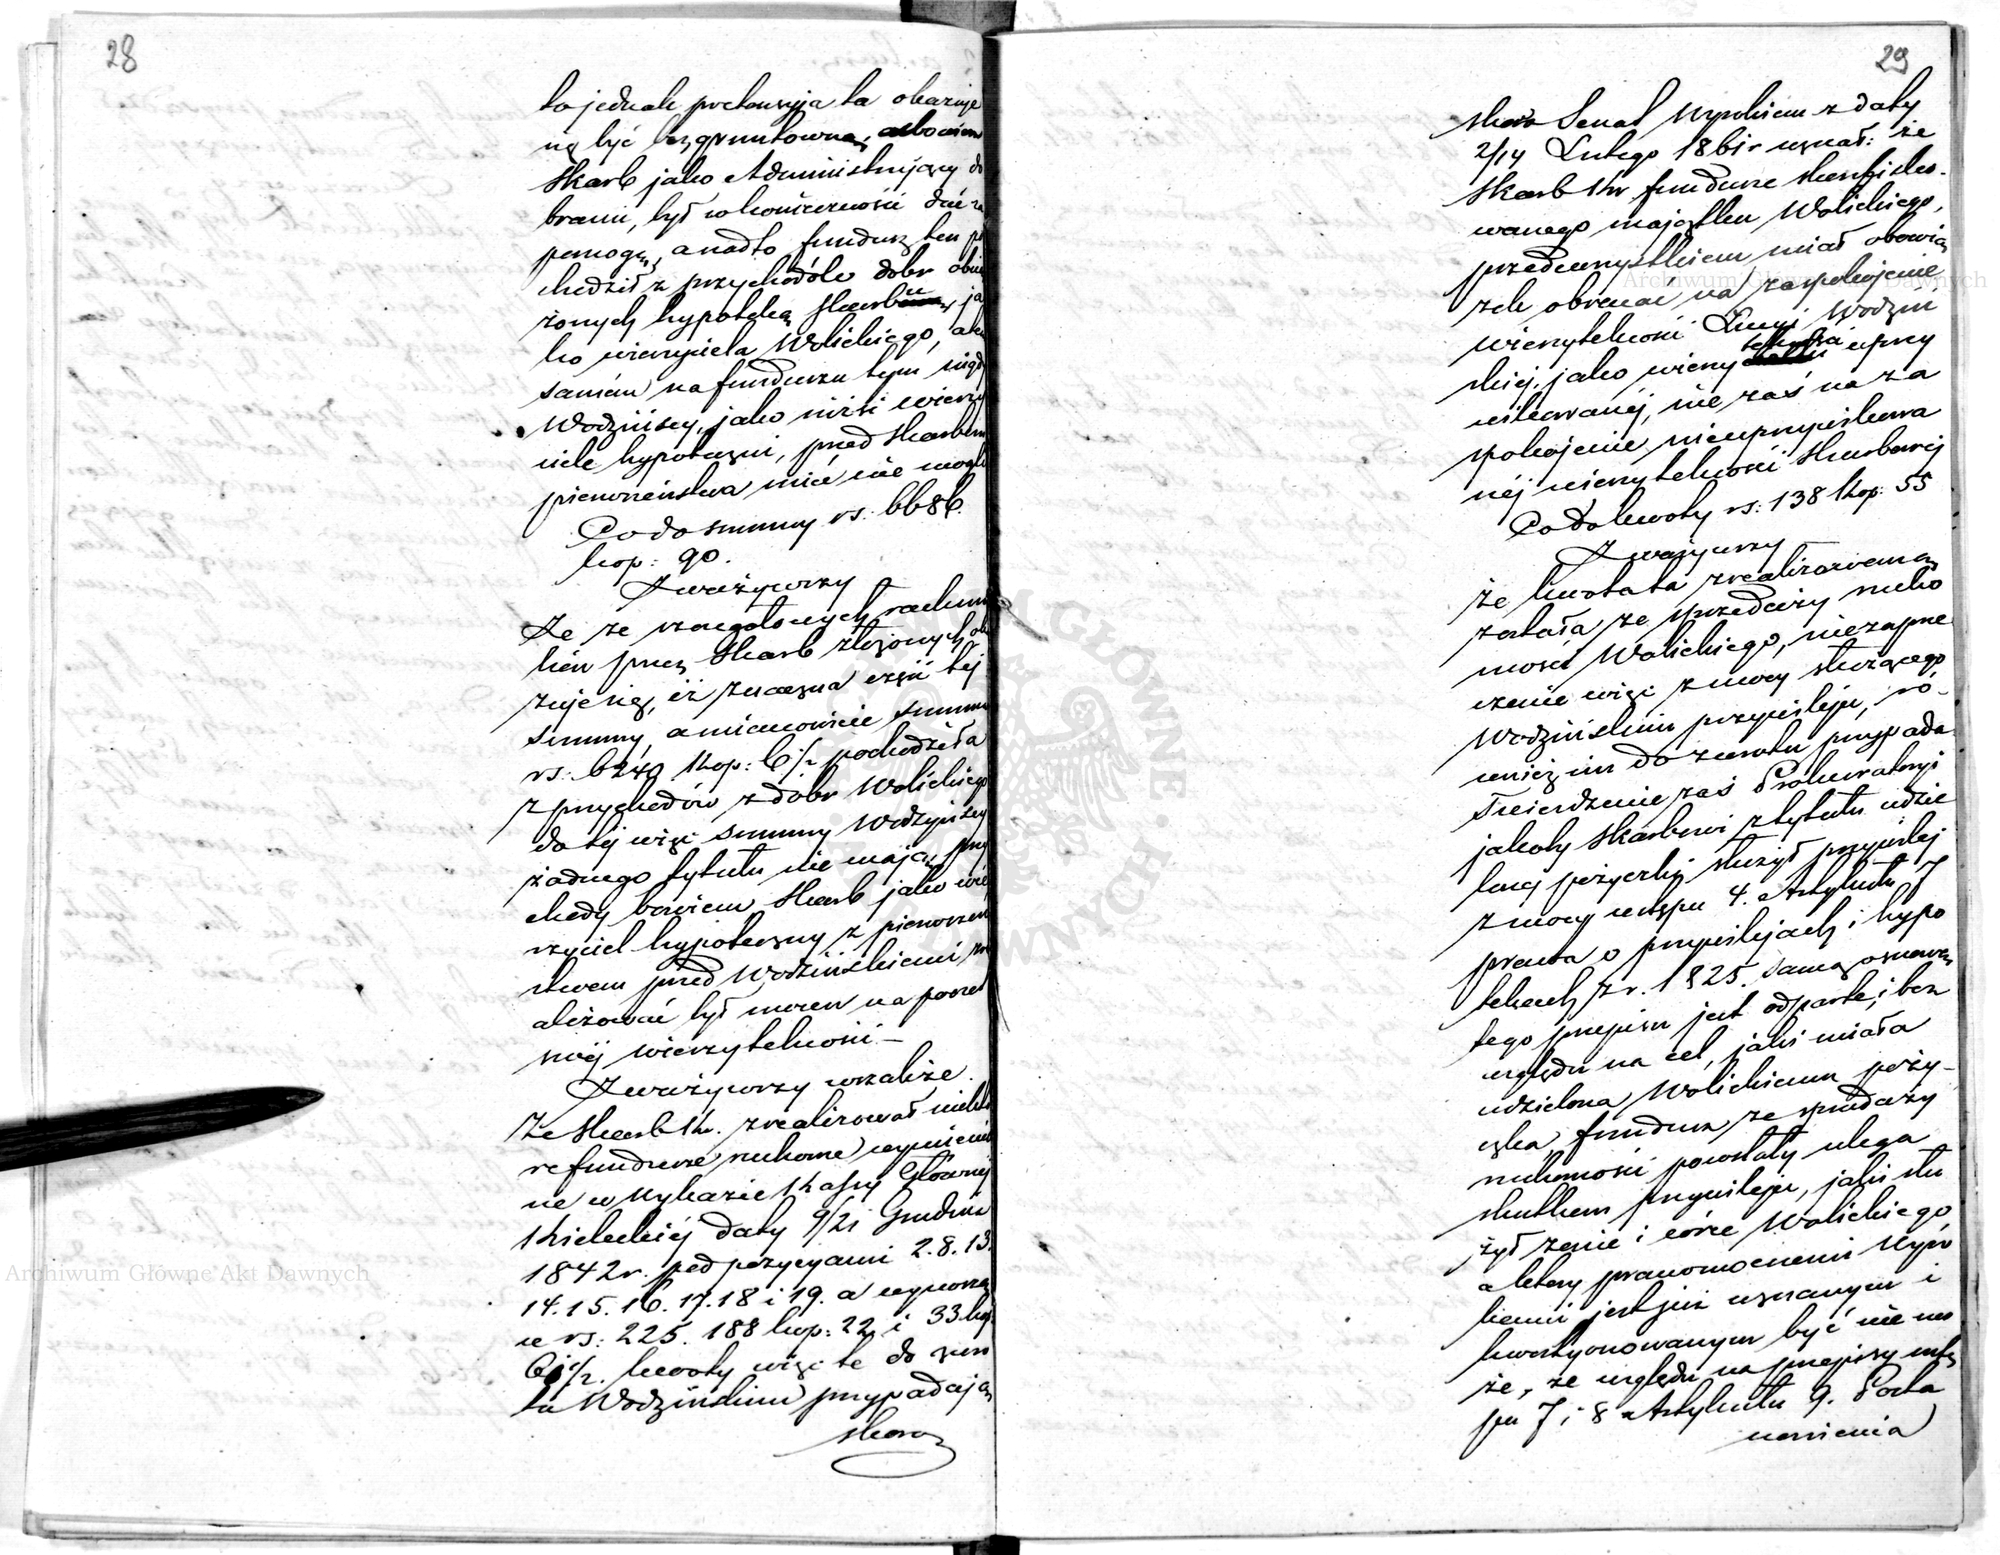 28
to jednak pretensyja ta okazuje
się być bezgruntowną, albowiem
Skarb jako Administrujący do
brami, był w konieczności dać za
pomogę, a nadto fundusz ten po
chodził z przychodów dobr obcią
żonych hypoteką Skarbu, ja
ko wierzyciela Wolickiego, a tem
samém na funduszu tym nigdy
Wodzińscy, jako niżsi wierzy
ciele hypoteczni, przed Skarbem
pierwszeństwa mieć nie mogli
Co do summy rs: 6686.
kop: 90.
Zważywszy
Że ze szczegółowych rachun
ków przez Skarb złożonych oka
zuje się, iż znaczna część tej
summy, a mianowicie summa
rs: 6240 kop: 6 1/2 pochodziła
z przychodów z dóbr Wolickiego
do tej więc summy Wodzyńscy
żadnego tytułu nie mają, przy
chody bowiem Skarb jako wie
rzyciel hypoteczny z pierwszeń
stwem przed Wodzińskiemi zre
alizować był mocen na poczet
swéj wierzytelności –
Zważywszy wszakże
Że Skarb Kr. zrealizował niektó
re fundusze ruchome wymienio
ne w Wykazie Kassy Głównej
Kieleckiéj daty 9/21 Grudnia
1842 r. pod pozycyami 2. 8. 13.
14. 15. 16. 17. 18 i 19. a wynoszą
ce rs: 225. 188 kop: 22 i 33 kop:
61/2. kwoty więc te do zwro
tu Wodzińskim przypadają
skoro
29
skoro Senat Wyrokiem z daty
2/14 Lutego 1861 r uznał: że
Skarb Kr fundusze skonfisko-
wanego majątku Wolickiego,
przedewszystkiem miał obowią
zek obracać na zaspokojenie
wierzytelności Wodziń
skiéj, jako wierzytelności uprzy
wilowanéj, nie zaś na za
spokojenie nieuprzywilowa
néj wierzytelności Skarbowéj
Co do kwoty rs: 138 kop: 55
Zważywszy
że kwota ta zrealizowaną
została ze sprzedaży rucho
mości Wolickiego, niezaprze
czenie więc z mocy służącego
Wodzińskim przywileju, ró-
wnież im do zwrotu przypada
Twierdzenie zaś Prokuratoryi
jakoby Skarbowi z tytułu udzie
lonej pożyczki służył przywilej
z mocy ustępu 4. Artykułu 7
prawa o przywilejach i hypo
tekach z r. 1825. samą osnową
tego przepisu jest odparte, i bez
względu na cel, jaki miała
udzielona Wolickiemu poży-
czka, fundusz ze sprzedaży
ruchomości powstały ulega
skutkom przywileju, jaki słu
żył żonie i córce Wolickiego
a który prawomocnemi Wyro
kiemi jest już uznanym i
kwestyonowanym być nie mo
że, ze względu na przepisy ustę
pu 7 i 8 Artykułu 9. Posta
nowienia
Archiwum Główne Akt Dawnych
Archiwum Główne Akt Dawnych